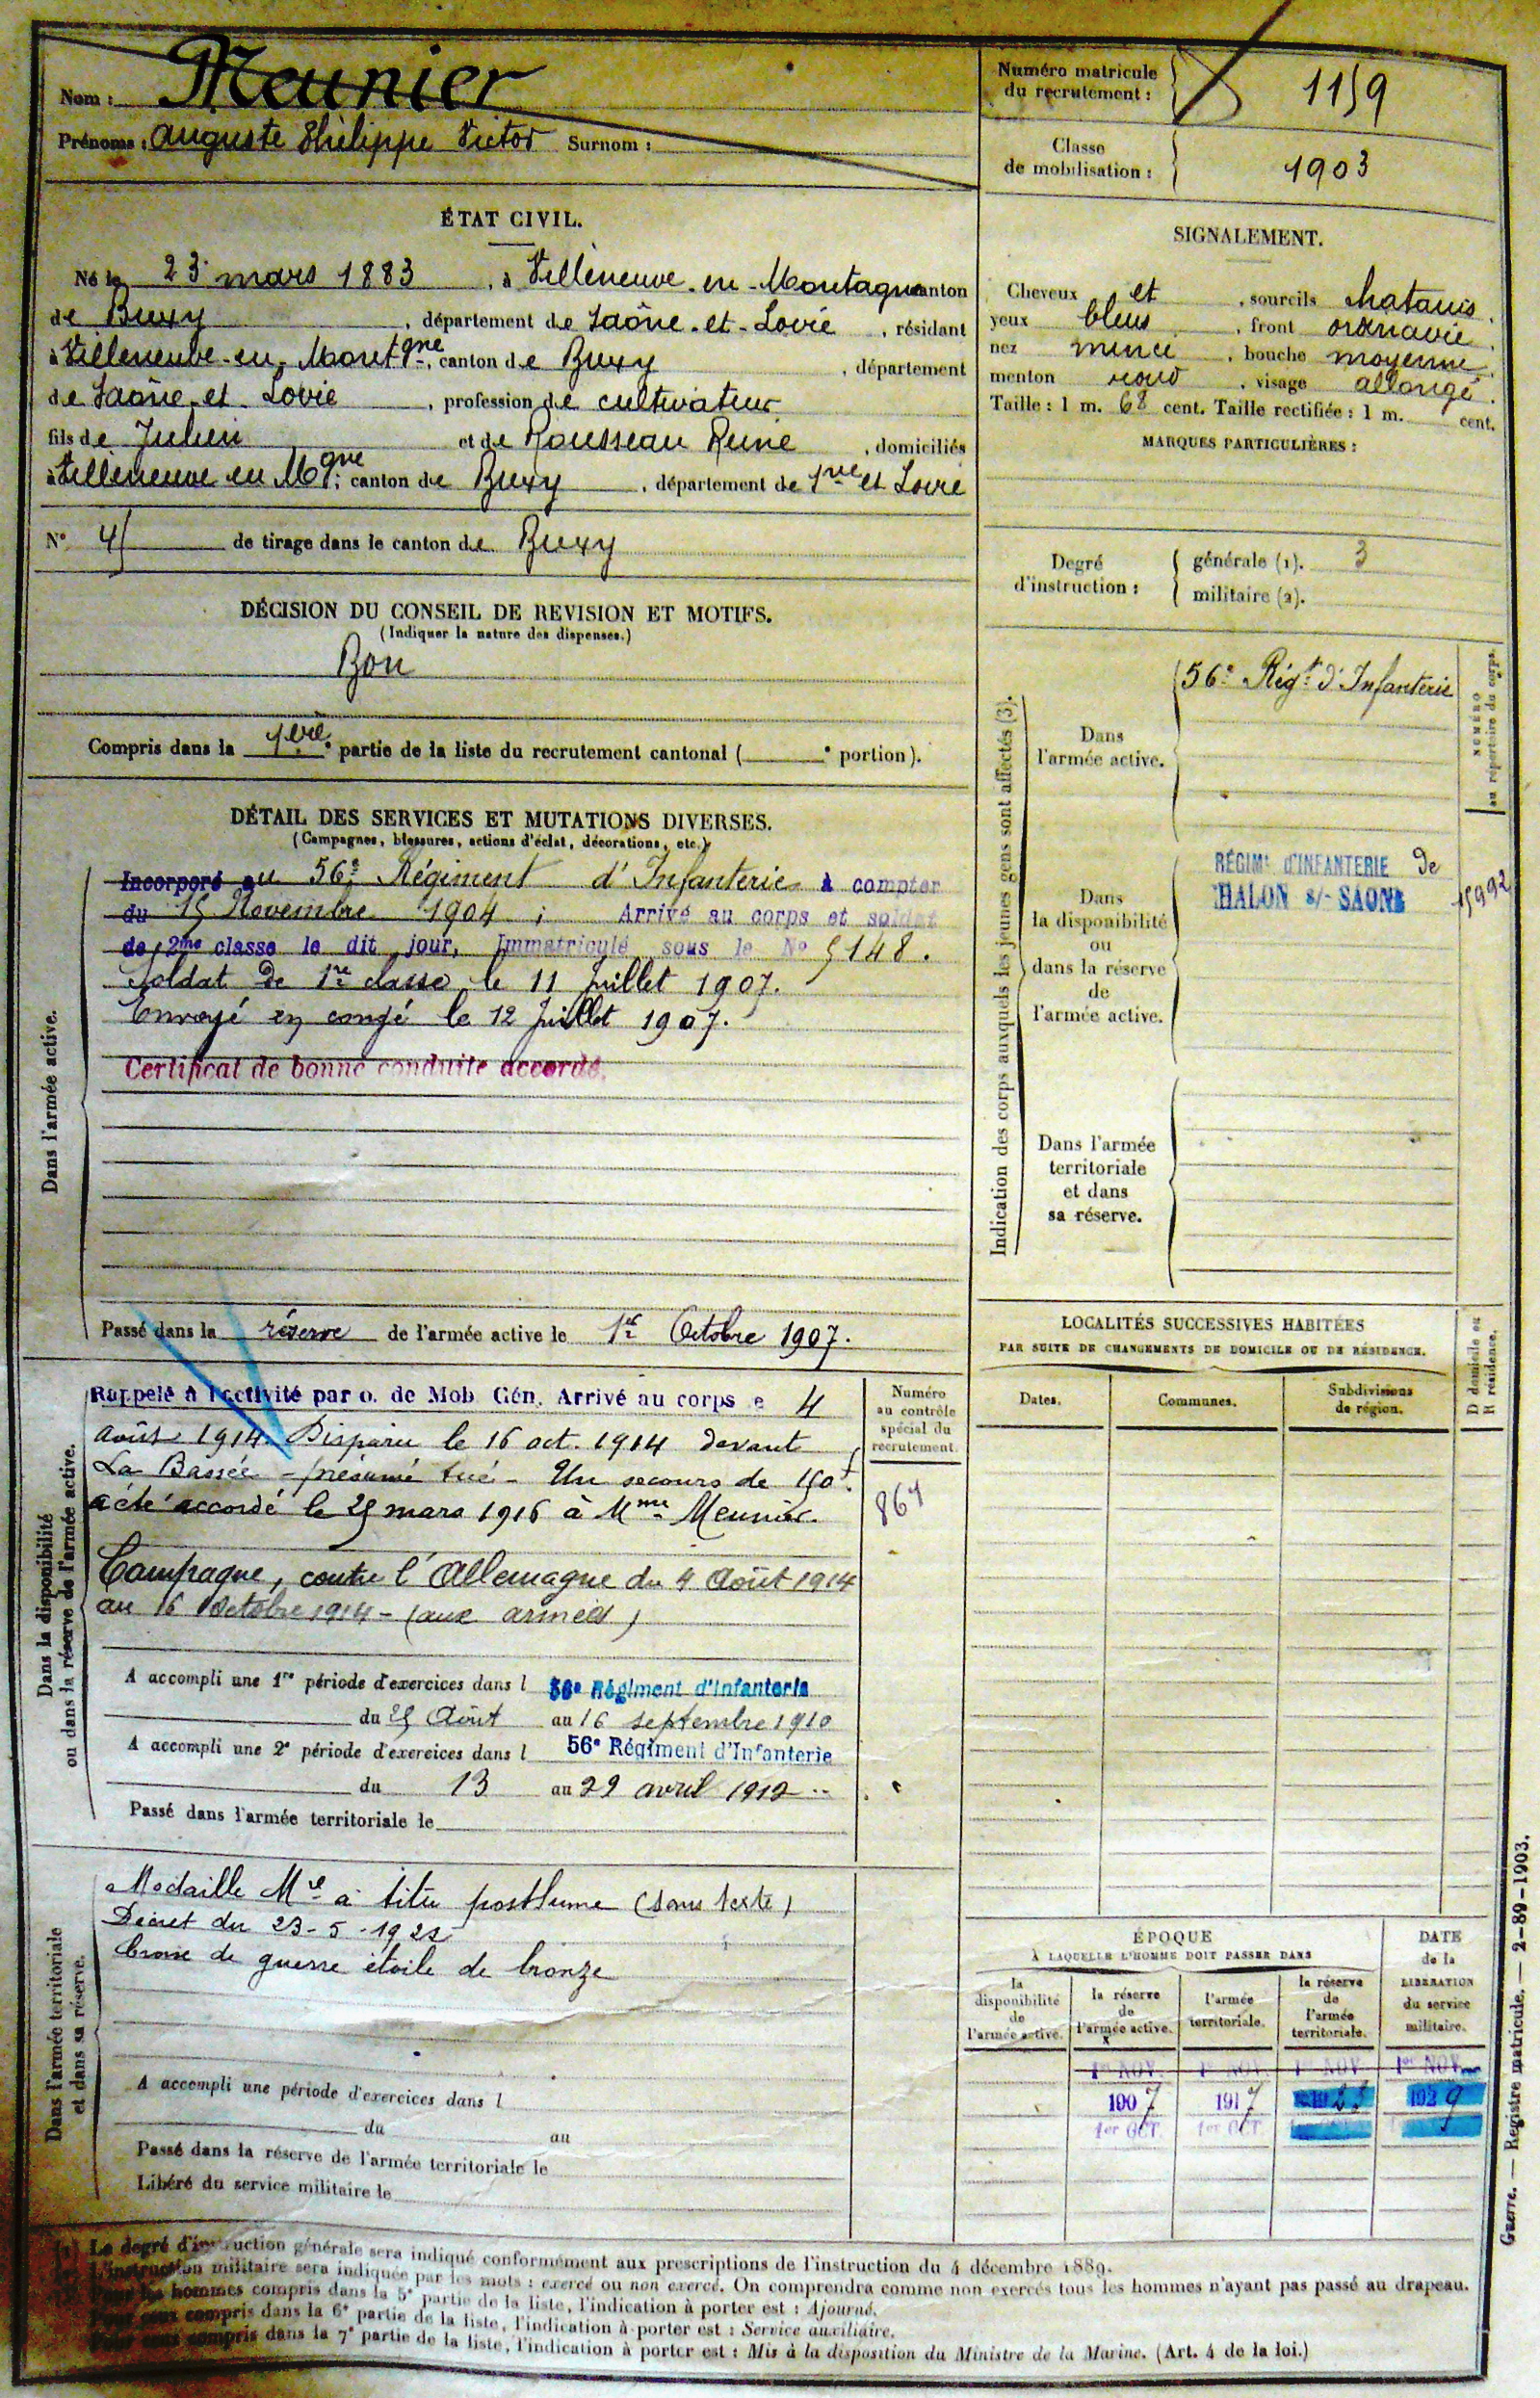 Nom : Meunier
Prénoms : Auguste Philippe Victor Surnom :
Numéro matricule
du recrutement : 1159
Classe
de mobilisation : 1903
ÉTAT CIVIL.
Né le 23 mars 1883, à Villeneuve-en-Montagne canton
de Buxy, département de Saône-et-Loire, résidant
à Villeneuve-en-Montgne, canton de Buxy, département
de Saône et Loire, profession de cultivateur
fils de Julien et de Rousseau Reine, domiciliés
à Villeneuve en Mgne, canton de Buxy, département de Sne et Loire
N° 45 de tirage dans le canton de Buxy
SIGNALEMENT.
Cheveux et, sourcils chatains.
yeux bleus, front ordinaire.
nez mince, bouche moyenne.
menton rond, visage allongé.
Taille : 1 m. 68 cent. Taille rectifiée : 1 m. cent.
MARQUES PARTICULIÈRES :
Degré
d'instruction :
générale (1). 3
militaire (2).
DÉCISION DU CONSEIL DE REVISION ET MOTIFS.
(Indiquer la nature des dispenses.)
Bon
Compris dans la 1ère partie de la liste du recrutement cantonal ( e portion).
DÉTAIL DES SERVICES ET MUTATIONS DIVERSES.
(Campagnes, blessures, actions d'éclat, décorations, etc.)
Dans l'armée active.
Incorporé au 56e Régiment d'Infanterie à compter
du 15 Novembre 1904 ; Arrivé au corps et soldat
de 2me classe le dit jour, Immatriculé sous le No 5148.
Soldat de 1re classe le 11 Juillet 1907.
Envoyé en congé le 12 Juillet 1907.
Certificat de bonne conduite accordé.
Passé dans la réserve de l'armée active le 1er Octobre 1907.
Indication des corps auxquels les jeunes gens sont affectés (3).
NUMÉRO
au répertoire du corps.
Dans
l'armée active.
56e Régt d'Infanterie
Dans
la disponibilité
ou
dans la réserve
de
l'armée active.
RÉGIMt D'INFANTERIE de
CHALON s/- SAONE
15992
Dans l'armée
territoriale
et dans
sa réserve.
Dans la disponibilité
ou dans la réserve de l'armée active.
Rappelé à l'activité par o. de Mob. Gén. Arrivé au corps le 4
août 1914. Disparu le 16 oct. 1914 devant
La Bassée - présumé tué - Un secours de 150f
a été accordé le 25 mars 1916 à Mme Meunier.
Campagne, contre l'Allemagne du 4 Août 1914
au 16 Octobre 1914 - (aux armées)
Numéro
au contrôle
spécial du
recrutement.
A accompli une 1re période d'exercices dans l 56e Régiment d'Infanterie
du 25 Août au 16 septembre 1910
A accompli une 2e période d'exercices dans l 56e Régiment d'Infanterie
du 13 au 29 avril 1912
Passé dans l'armée territoriale le
LOCALITÉS SUCCESSIVES HABITÉES
PAR SUITE DE CHANGEMENTS DE DOMICILE OU DE RÉSIDENCE.
Dates.
Communes.
Subdivisions
de région.
D domicile ou
R résidence.
Dans l'armée territoriale
et dans sa réserve.
Médaille Mre à titre posthume (sans texte)
Décret du 23-5-1922
Croix de guerre étoile de bronze
A accompli une période d'exercices dans l
du au
Passé dans la réserve de l'armée territoriale le
Libéré du service militaire le
ÉPOQUE
À LAQUELLE L'HOMME DOIT PASSER DANS
la
disponibilité
de
l'armée active.
la réserve
de
l'armée active.
l'armée
territoriale.
la réserve
de
l'armée
territoriale.
DATE
de la
LIBÉRATION
du service
militaire.
1er NOV. 1er NOV. 1er NOV. 1er NOV.
1907 1917 1929
1er OCT. 1er OCT.
(1) Le degré d'instruction générale sera indiqué conformément aux prescriptions de l'instruction du 4 décembre 1889.
L'instruction militaire sera indiquée par les mots : exercé ou non exercé. On comprendra comme non exercés tous les hommes n'ayant pas passé au drapeau.
Pour les hommes compris dans la 5e partie de la liste, l'indication à porter est : Ajourné.
Pour ceux compris dans la 6e partie de la liste, l'indication à porter est : Service auxiliaire.
Pour ceux compris dans la 7e partie de la liste, l'indication à porter est : Mis à la disposition du Ministre de la Marine. (Art. 4 de la loi.)
Guerre. — Registre matricule. — 2-89-1903.